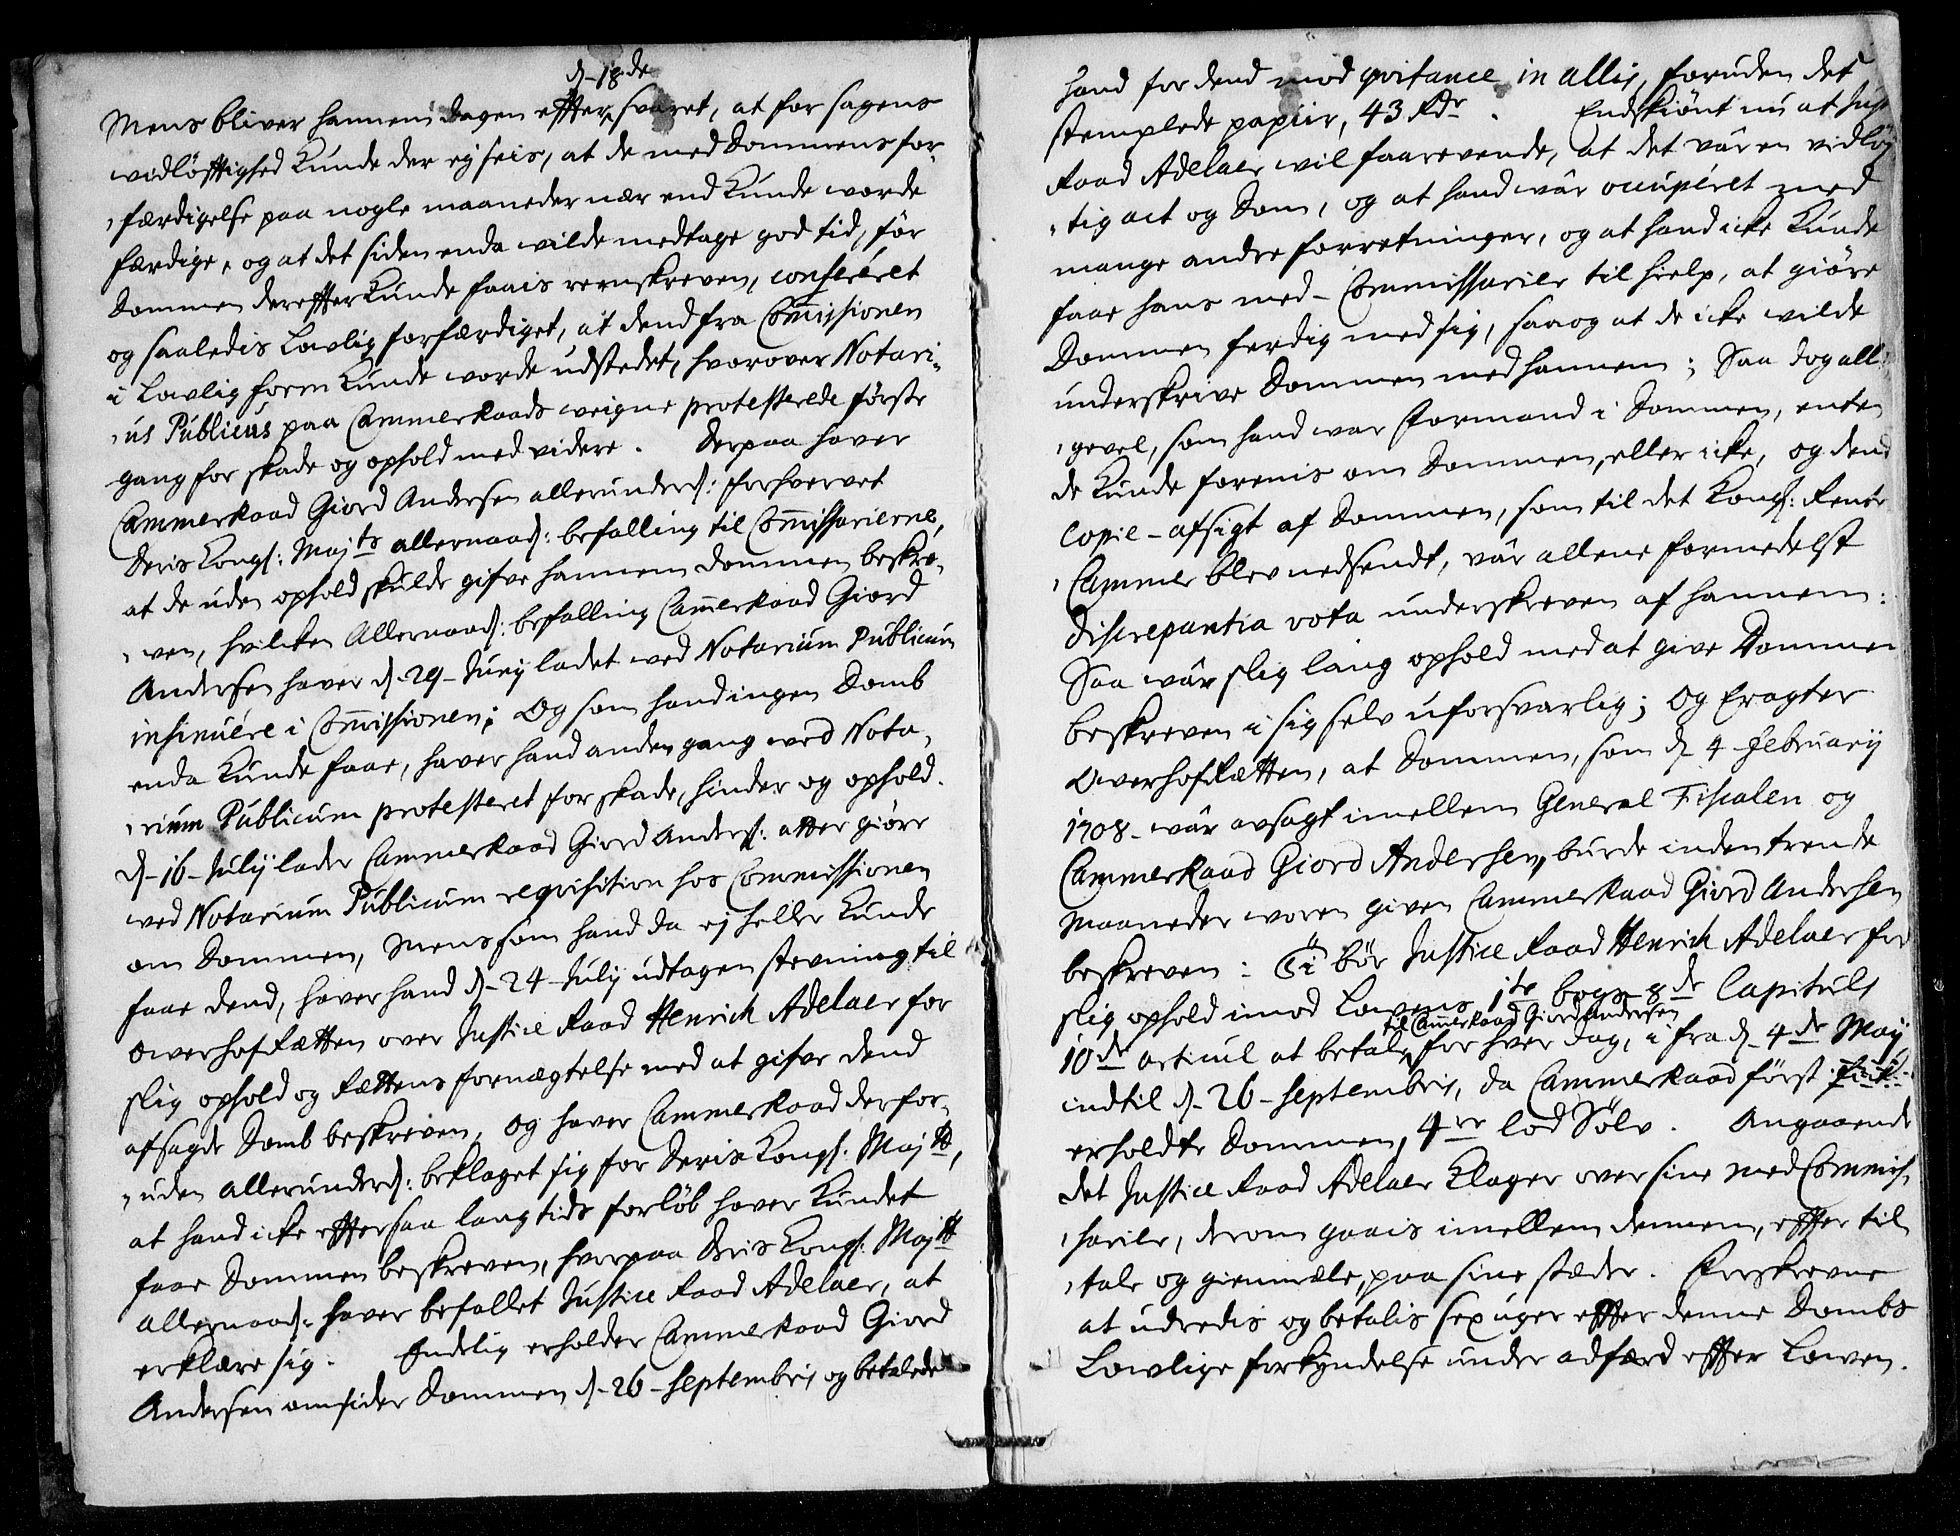 d. 18de
Mens bliver hannem dagen effter svaret, at for sagens
vidløfftighed kunde der ej seis, at de med Dommens for-
færdigelse paa nogle maaneder nær end kunde worde
færdige, og at det siden enda wilde medtage god tid, før
Dommen dereffter kunde faais reenskreven, conferéret
og saaledis Lovlig forfærdiget, at dend fra Commissionen
i Lovlig form kunde worde udstedet, hvorover Notari-
us Publicus paa Cammerraads weigne protesterede første
gang for skade og ophold med videre. Derpaa haver
Cammerraad Giord Andersen allerunderd: forhvervet
Deris Kongl: Majts allernaad: befalling til Commissarierne,
at de uden ophold skulde gifve hannem dommen beskre-
ven, hvilcken Allernaad: befalling Cammerraad Giord
Andersen haver d. 29 Junij ladet ved Notarium Publicum
insinuére i Commissionen; Og som hand ingen Domb
enda kunde faae, haver hand anden gang ved Nota-
rium Publicum protesteret for skade, hinder og ophold.
d. 16 Julij lader Cammerraad Giord Anders: atter giøre
ved Notarium Publicum reqvisition hos Commissionen
om Dommen, Mens som hand da ej heller kunde
faae dend, haver hand d. 24 Julij udtagen stevning til
OverhofRætten over Justice Raad Henrich Adelaer for
slig ophold og Rættens fornægtelse med at gifve dend
afsagde Domb beskreven, og haver Cammerraad derfor-
uden allerunderd: beklaget sig for Deris Kongl: Majtt,
at hand icke effter saa lang tids forløb haver kundet
faae Dommen beskreven, hvorpaa Deris Kongl: Majtt
allernaad: haver befallet Justice Raad Adelaer, at
erklære sig. Endelig erholder Cammerraad Giord
Andersen omsider Dommen d. 26 Septembris og betalede
hand for dend mod qvitance in allis, foruden det
stemplede papiir, 43 Rdr. Endskiønt nu at Just
Raad Adelaer wil foarevende, at det vår en vidløf
tig act og Dom, og at hand wår occupéret med
mange andre forretninger, og at hand icke kunde
faae hans med-Commissarier til hielp, at giøre
Dommen ferdig med sig, saa og at de icke wilde
underskrive Dommen med hannem; Saa dog alli
gevel, som hand war Formand i Dommen, enten
de kunde forenis om Dommen, eller icke, og dend
Copie-afsigt af Dommen, som til det Kongl: Rente
Cammer blev nedsendt, vår allene formedelst
discrepantia vota underskreven af hannem:
Saa wår slig lang ophold med at give Dommen
beskreven i sig selv uforsvarlig; Og Eragter
OverhofRætten, at Dommen, som d. 4 Februarij
1708 wår avsagt imellem General Fiscalen og
Cammerraad Giord Andersen, burde inden trende
Maaneder woren given Cammerraad Giord Andersen
beskreven: Ti bør Justice Raad Henrich Adelaer for
slig ophold imod Lovens 1te bogs 8de Capituls
til Cammerraad Giord Andersen
10de articul at betale for hver dag, i fra d. 4de Maij
indtil d. 26 Septembris, da Cammerraad først fick
erholdte Dommen, 4re lod Sølv. Angaaende
det Justice Raad Adelaer klager over sine Med Commis-
sarier, derom gaais imellem dennem, effter til-
tale og giemmæle, paa sine stæder. Forskrevne
at udredis og betalis sex uger effter denne Dombs
Lovlige forkyndelse under adfærd effter Loven.